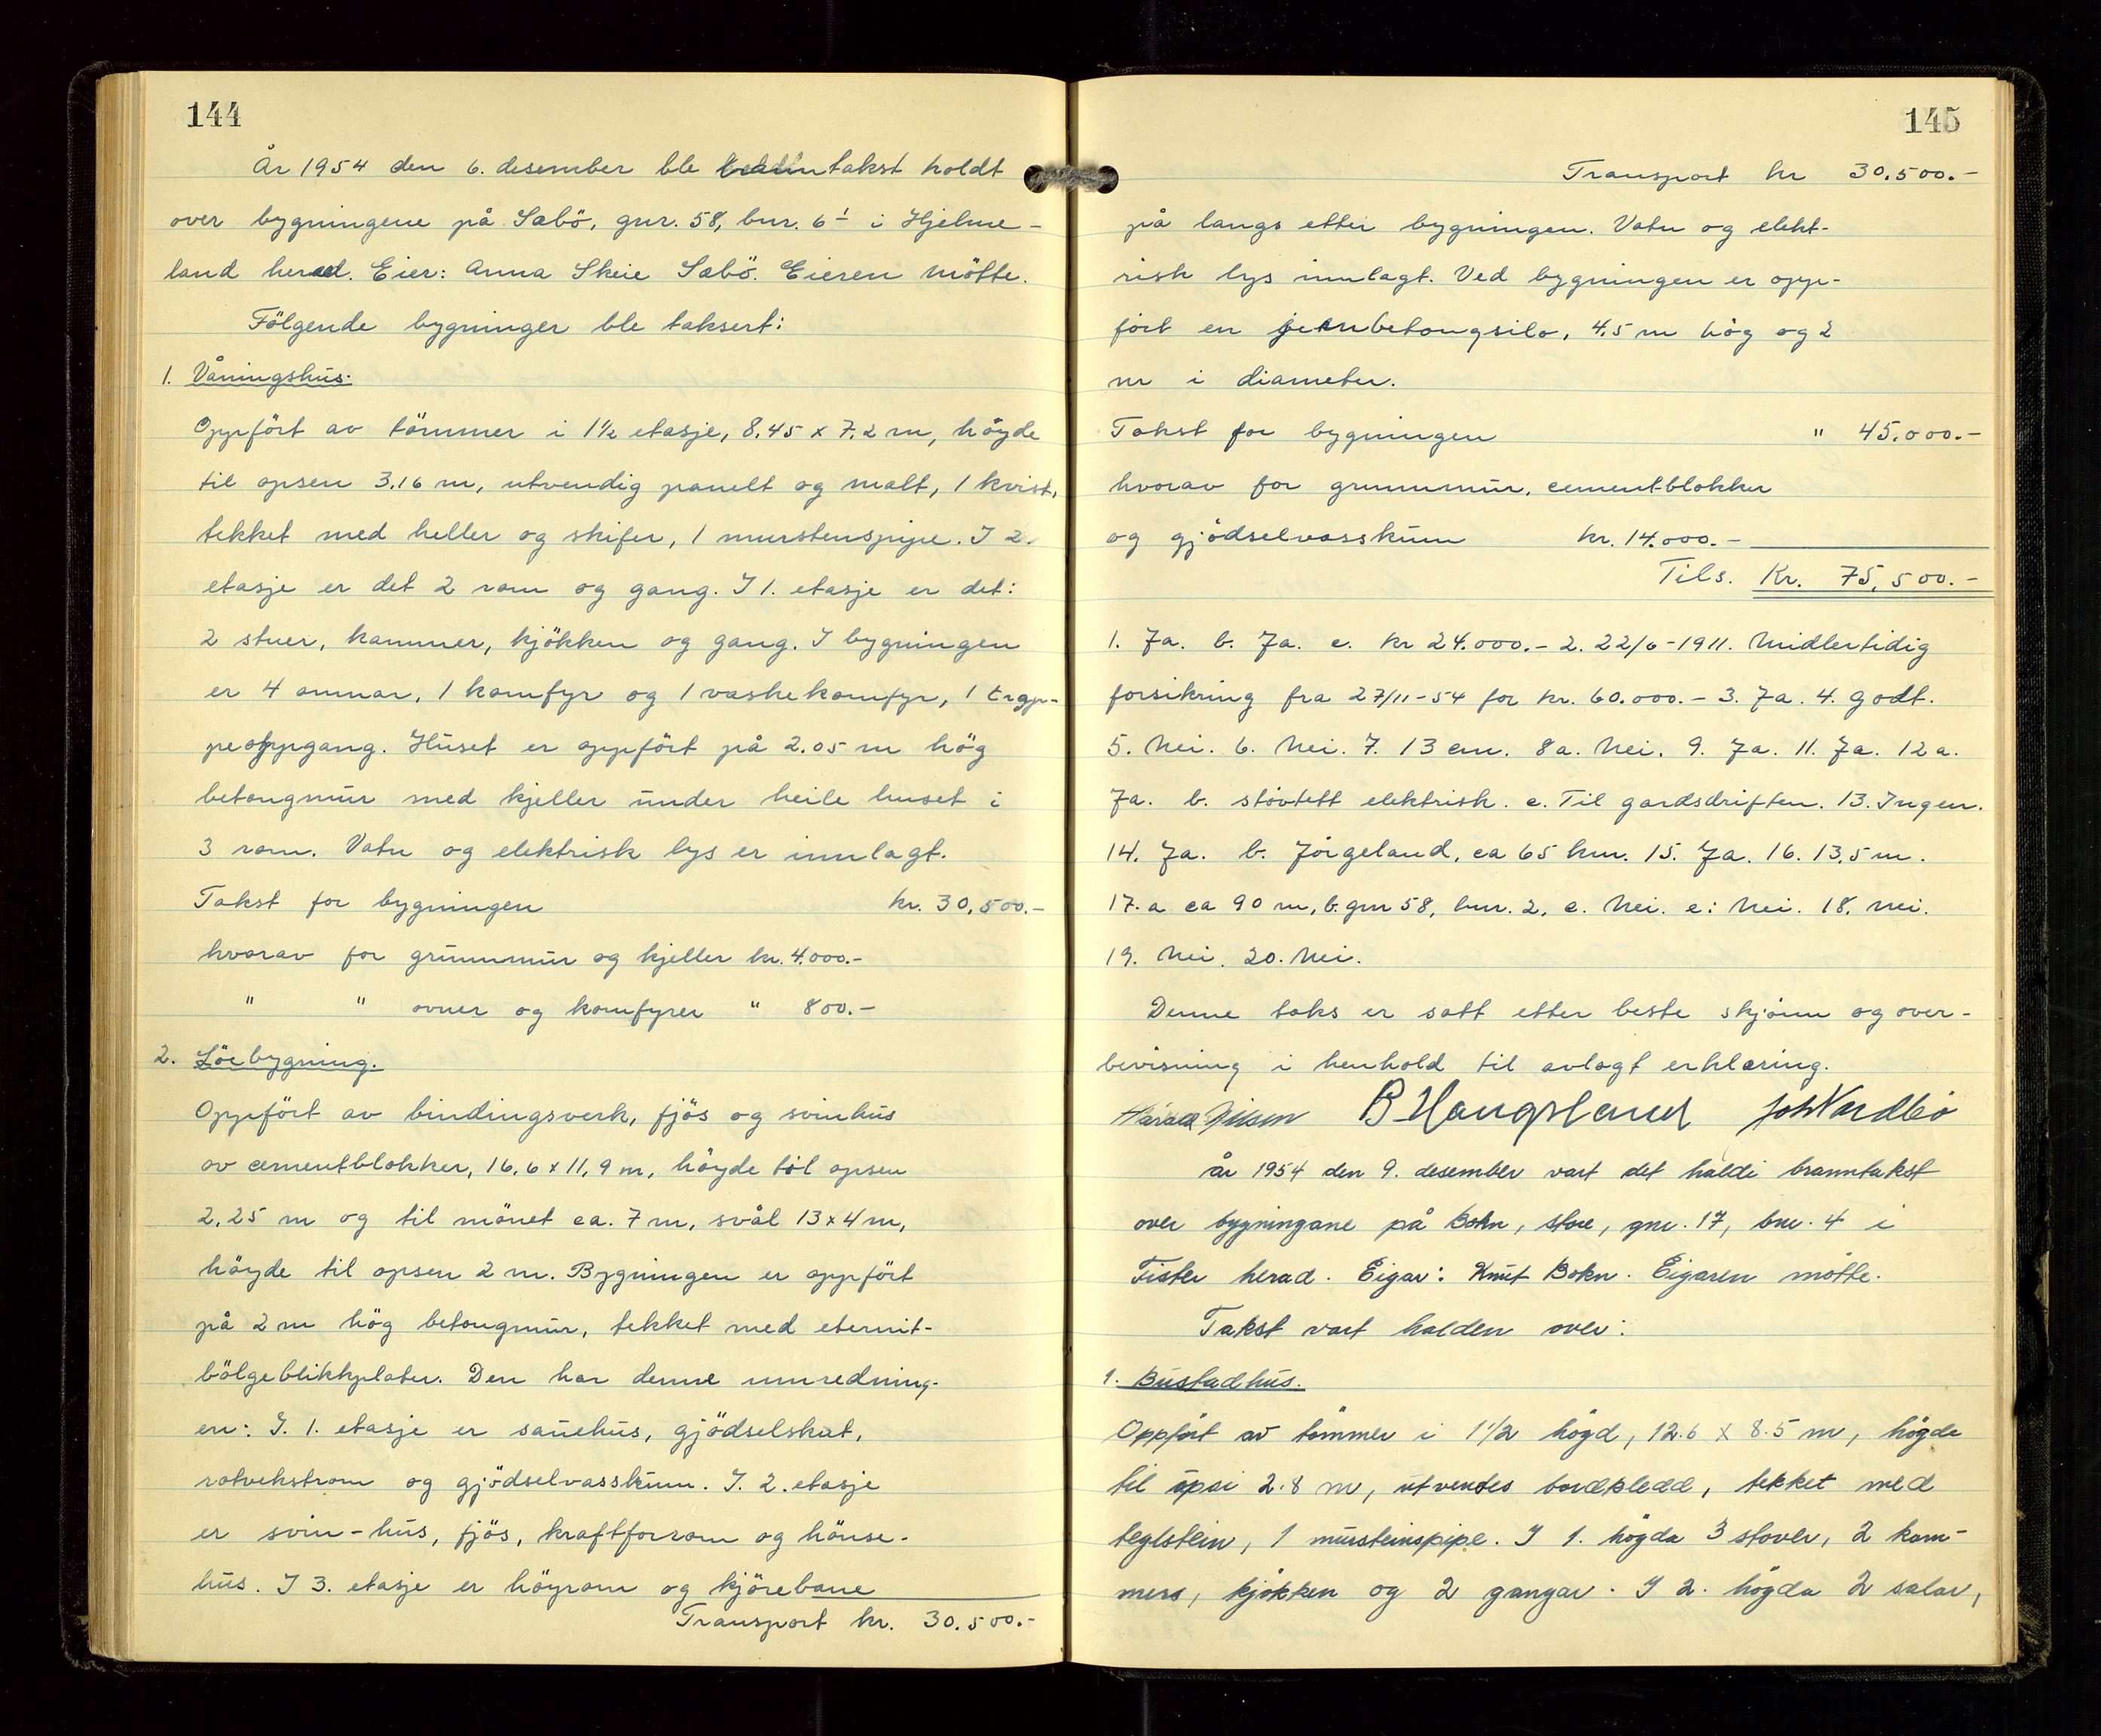 144
År 1954 den 6. desember ble branntakst holdt
over bygningene på Sæbö, gnr. 58, bnr. 6¹ i Hjelme-
land herad. Eier: Anna Skeie Sæbö. Eieren mötte.
Fölgende bygninger ble taksert:
1. Våningshus:
Oppfört av tömmer i 1½ etasje, 8,45 x 7,2 m, höyde
til opsen 3,16 m, utvendig panelt og malt, 1 kvist,
tekket med heller og skifer, 1 murstenspipe. I 2.
etasje er det 2 rom og gang. I 1. etasje er det:
2 stuer, kammer, kjökken og gang. I bygningen
er 4 omnar, 1 komfyr og 1 vaskekomfyr, 1 trap-
peoppgang. Huset er oppfört på 2.05 m hög
betongmur med kjeller under heile huset i
3 rom. Vatn og elektrisk lys er innlagt.
Takst for bygningen kr. 30,500.-
hvorav for grunnmur og kjeller kr. 4.000.-
" " ovner og komfyrer " 800.-
2. Löebygning.
Oppfört av bindingsverk, fjös og svinhus
av cementblokker, 16,6 x 11,9 m, höyde til opsen
2,25 m og til mönet ca. 7 m, svål 13 x 4 m,
höyde til opsen 2 m. Bygningen er oppfört
på 2 m hög betongmur, tekket med eternit-
bölgeblikkplater. Den har denne innredning-
en: I. 1. etasje er sauehus, gjödselskut,
rotvekstrom og gjödselvasskum. I. 2. etasje
er svin-hus, fjös, kraftforrom og hönse-
hus. I 3. etasje er höyrom og kjörebane
Transport kr. 30.500.-
145
Transport kr 30.500.-
på langs etter bygningen. Vatn og elekt-
risk lys innlagt. Ved bygningen er opp-
fört en jernbetongsilo, 4,5 m hög og 2
m i diameter.
Takst for bygningen " 45.000.-
hvorav for grunnmur, cementblokker
og gjödselvasskum kr. 14.000.-
Tils. Kr. 75,500.-
1. Ja. b. Ja. c. kr 24.000.- 2. 22/6-1911. Midlertidig
forsikring fra 27/11-54 for kr. 60.000.- 3. Ja. 4. Godt.
5. Nei. 6. Nei. 7. 13 cm. 8a. Nei. 9. Ja. 11. Ja. 12a.
Ja. b. stövtett elektrisk. c. Til gardsdriften. 13. Ingen.
14. Ja. b. Jörgeland, ca 65 km. 15. Ja. 16. 13,5 m.
17. a ca 90 m, b. gnr 58, bnr. 2, c. Nei. e: Nei. 18. nei.
19. Nei. 20. Nei.
Denne taks er satt etter beste skjönn og over-
bevisning i henhold til avlagt erklæring.
Harald Nilsen B Haugsland Joh Nordbö
År 1954 den 9. desember vart det haldi branntakst
over bygningane på Bokn, store, gnr. 17, bnr. 4 i
Fister herad. Eigar: Knut Bokn. Eigaren mötte.
Takst vart halden over:
1. Bustadhus.
Oppfört av tömmer i 1 1/2 högd, 12.6 x 8.5 m, högde
til upsi 2.8 m, utvendes bordkledd, tekket med
teglstein, 1 mursteinspipe. I 1. högda 3 stover, 2 kam-
mers, kjökken og 2 gangar. I 2. högda 2 salar,